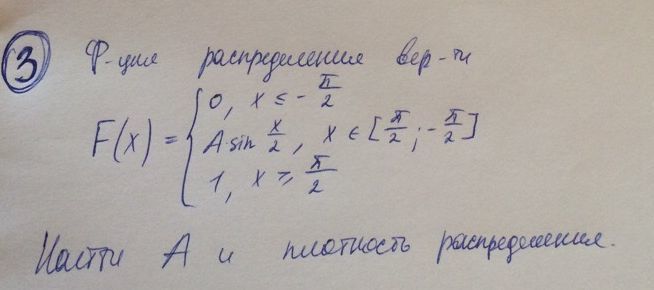 3 Ф-ция распределения вер-ти
0, x ≤ -π/2
F(x) = { A·sin x/2, x ∈ [π/2; -π/2]
1, x ≥ π/2
Найти A и плотность распределения.